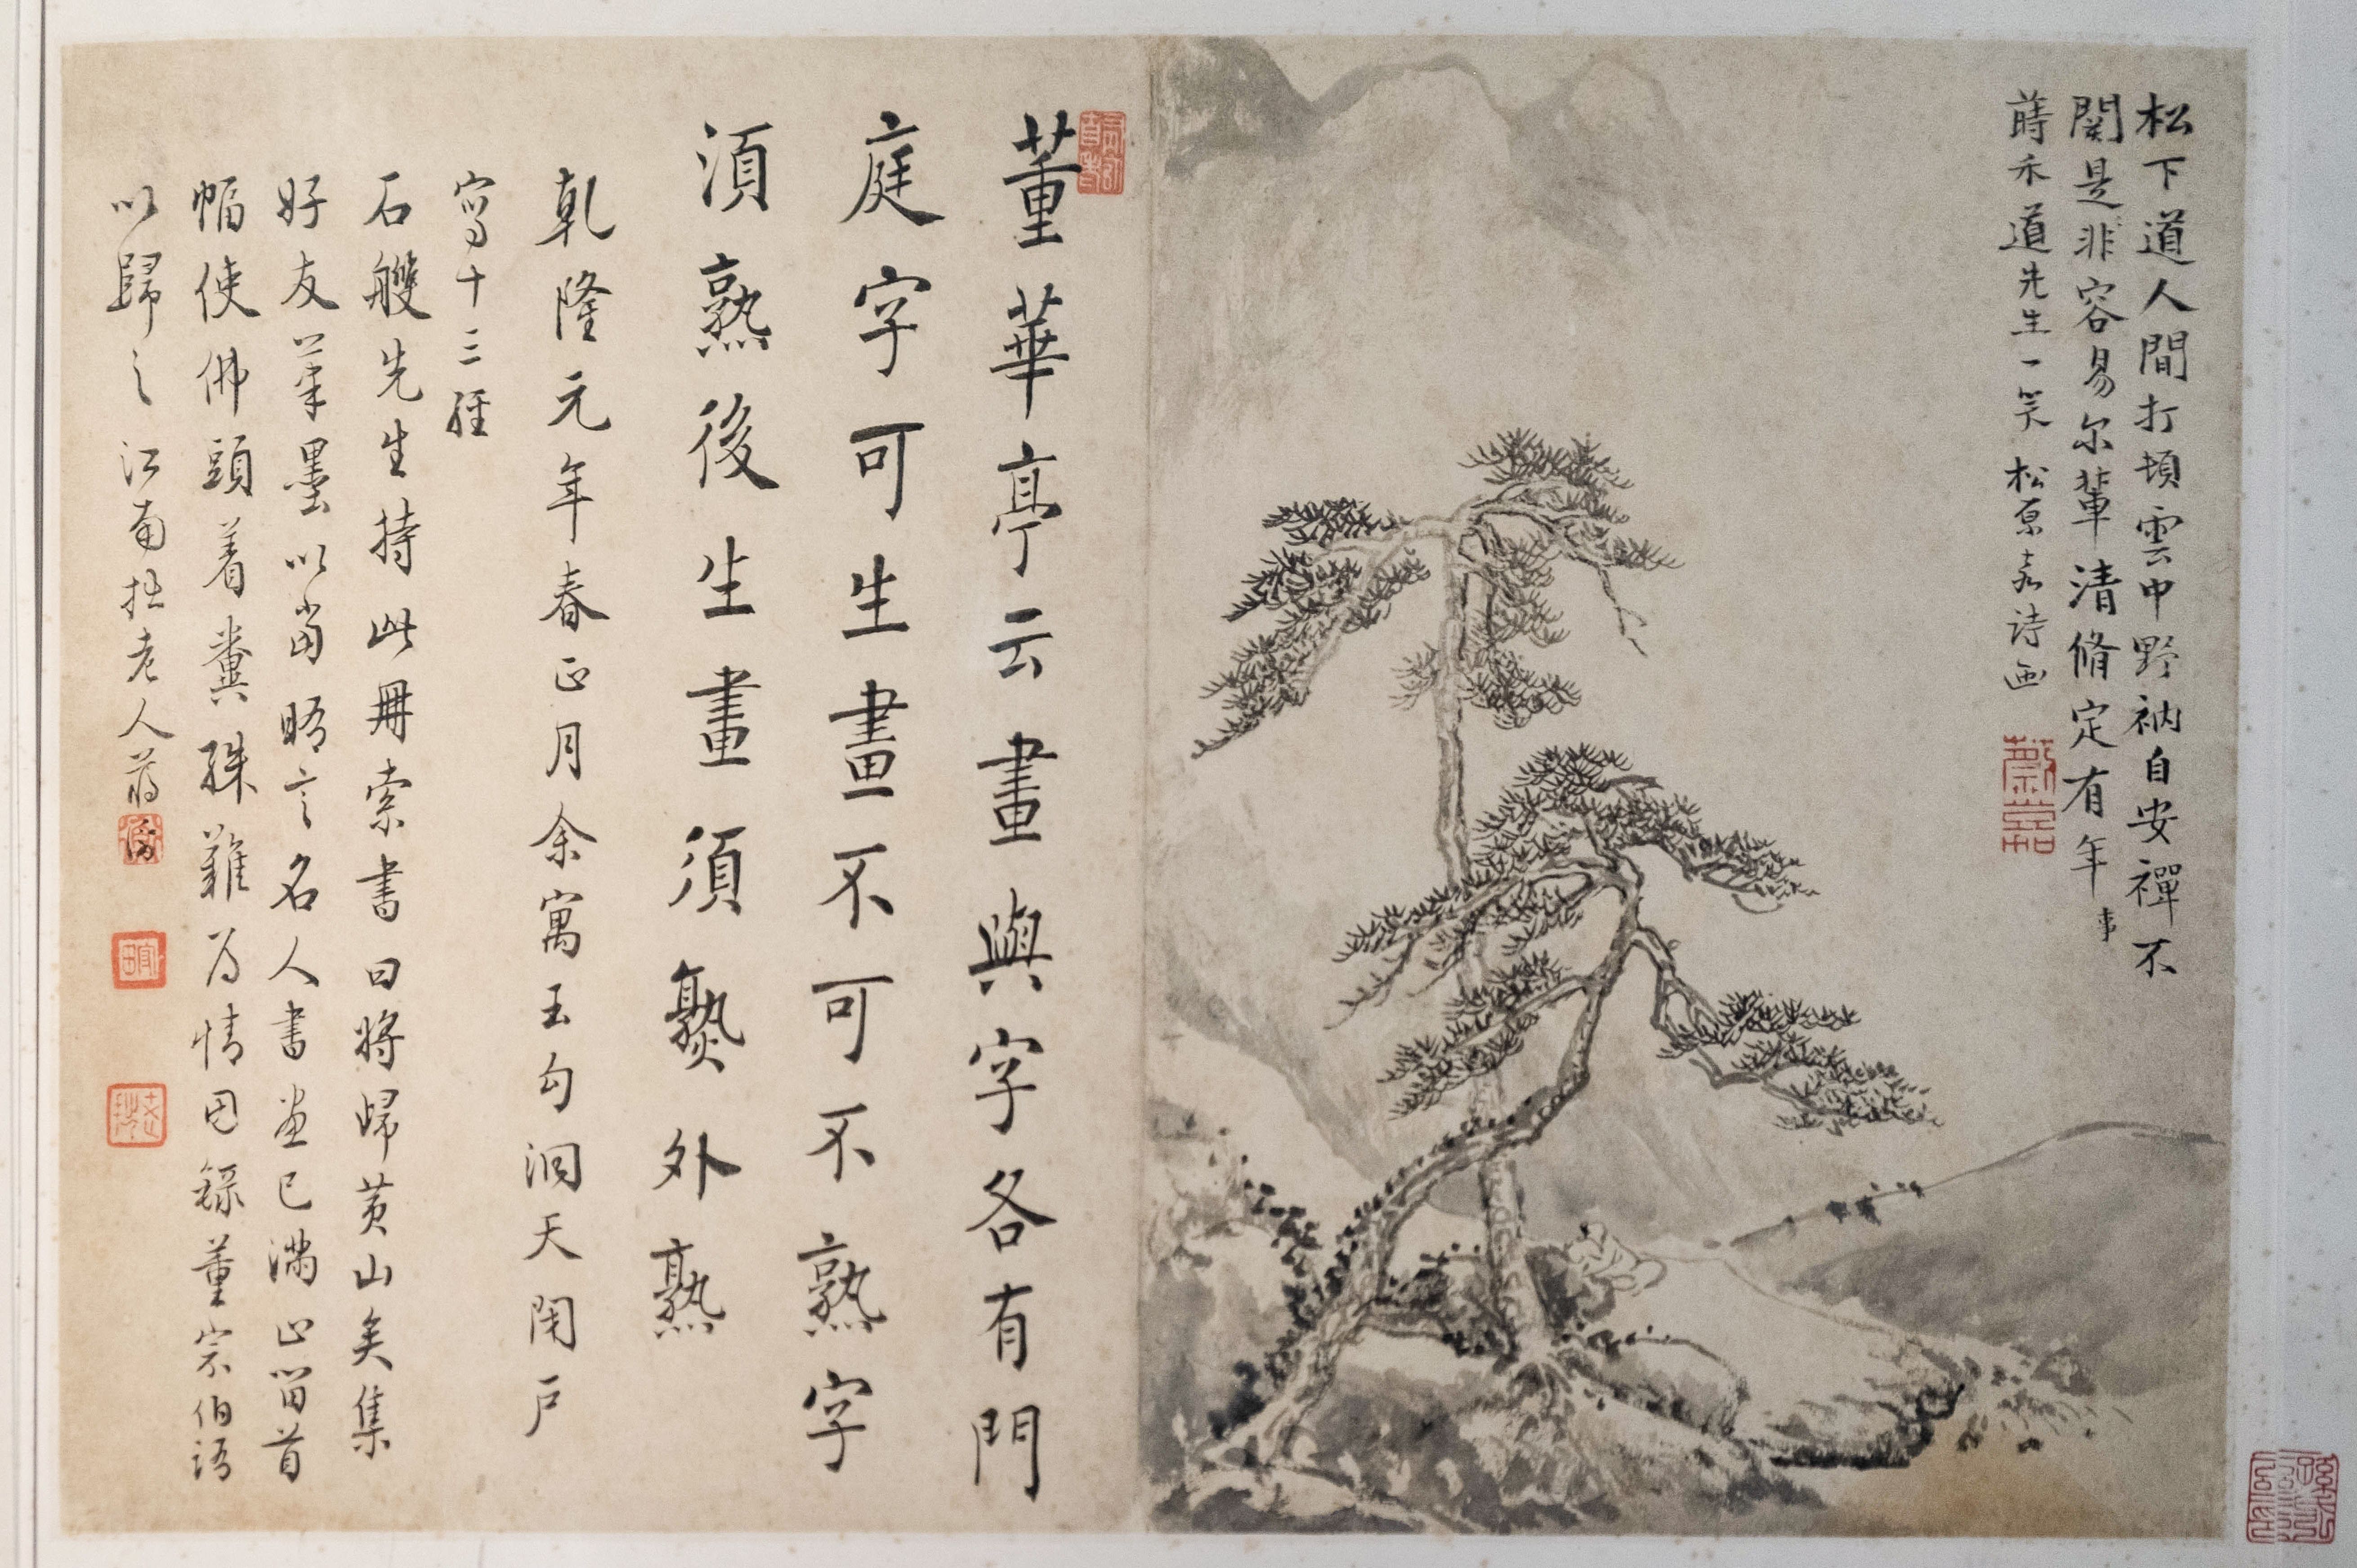 松下道人間打頓雲中野衲自安禪不
関是非容易尔輩清脩定有年事
蒔禾道先生一笑 松原嘉诗画
蔡嘉
董華亭云畫與字各有門
庭字可生畫不可不熟字
須熟後生畫須熟外熟
乾隆元年春正月余寓玉勾洞天閉户
寫十三經
石艭先生持此冊索書曰將歸黄山矣集
好友筆墨以當晤言名人書画已滿止留首
幅使佛頭着糞殊難為情因録董宗伯語
以歸之 江南拙老人蔣衡